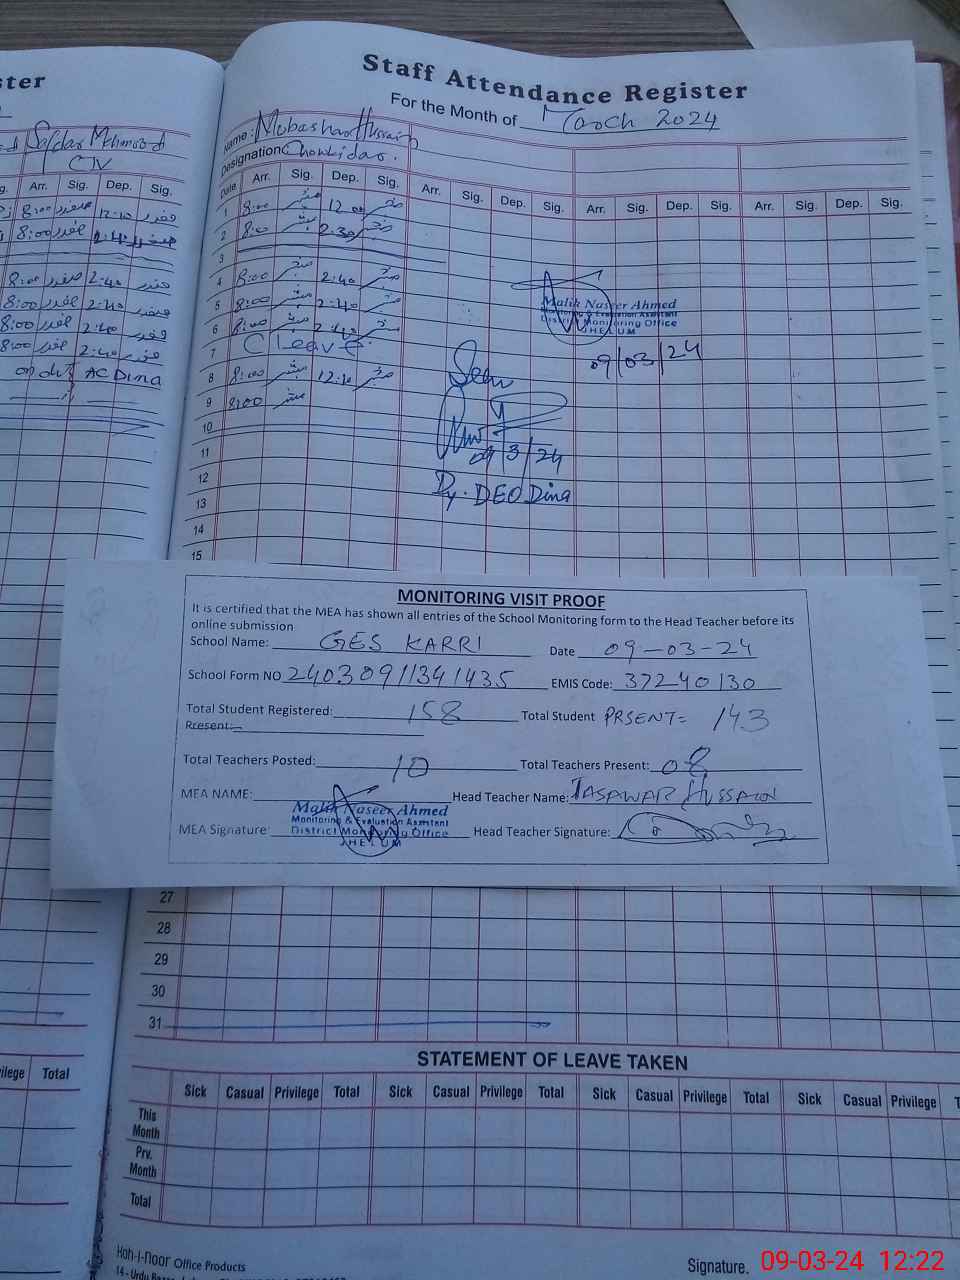 ster
Safdar Mehmood
CIV
g. Arr. Sig. Dep. Sig.
8:00 صفدر 12:10 صفدر
8:00 صفدر 2:40 صفدر
8:00 صفدر 2:40 صفدر
8:00 صفدر 2:40 صفدر
8:00 صفدر 2:40 صفدر
8:00 صفدر 2:40 صفدر
on duty AC Dina
Staff Attendance Register
For the Month of March 2024
Name: Mobashar Hussain
Designation: Chowkidar.
Date Arr. Sig. Dep. Sig. Arr. Sig. Dep. Sig. Arr. Sig. Dep. Sig. Arr. Sig. Dep. Sig.
1 8:00 مبشر 12:00 مبشر
2 8:0 مبشر 2:30 مبشر
3
4 8:00 مبشر 2:40 مبشر
5 8:00 مبشر 2:40 مبشر
6 8:00 مبشر 2:40 مبشر
7 C Leave
8 8:00 مبشر 12:10 مبشر
9 8:00 مبشر
10
11
12
13
14
15
Malik Naseer Ahmed
Monitoring & Evaluation Assistant
District Monitoring Office
JHELUM
09/03/24
Seen
09/3/24
Dy. DEO Dina
MONITORING VISIT PROOF
It is certified that the MEA has shown all entries of the School Monitoring form to the Head Teacher before its
online submission
School Name: GES KARRI Date 09-03-24
School Form NO 24030911341435 EMIS Code: 37240130
Total Student Registered: 158 Total Student PRSENT= 143
Present:
Total Teachers Posted: 10 Total Teachers Present: 08
MEA NAME: Head Teacher Name: TASAWAR HUSSAIN
Malik Naseer Ahmed
Monitoring & Evaluation Assistant
MEA Signature: District Monitoring Office Head Teacher Signature:
JHELUM
27
28
29
30
31
STATEMENT OF LEAVE TAKEN
ilege Total
Sick Casual Privilege Total Sick Casual Privilege Total Sick Casual Privilege Total Sick Casual Privilege
This Month
Prv. Month
Total
Koh-I-Noor Office Products
14 - Urdu
Signature.
09-03-24 12:22